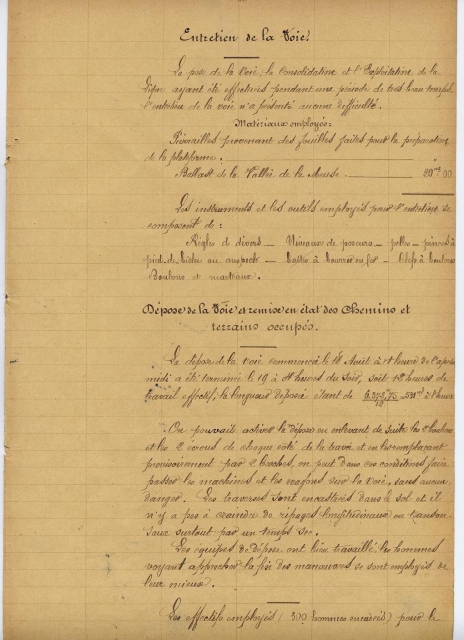 Entretien de la Voie.
La pose de la Voie, la Consolidation et l'Exploitation de la
ligne ayant été effectuées pendant une période de très beau temps
l'entretien de la voie n'a présenté aucune difficulté.
Matériaux employés:
Pierrailles provenant des fouilles faites pour la préparation
de la plateforme.
Ballast de la Vallée de la Meuse. 20 m³ 00
Les instruments et les outils employés pour l'entretien se
composent de:
Règles de dévers — Niveaux de poseurs — pelles — pinces à
pied de biche ou anspects — battes à bourrer en fer — Clefs à boulons
Boulons et marteaux.
Dépose de la Voie et remise en état des Chemins et
terrains occupés.
La dépose de la voie commencée le 18 Août à 1 heure de l'après
midi a été terminée le 19 à heures du Soir, soit 12 heures de
travail effectif, la longueur déposée étant de
On pouvait activer la dépose en enlevant de suite les 2 boulons
et les 2 écrous de chaque côté de la travée et en les remplaçant
provisoirement par 2 broches, on peut dans ces conditions faire
passer les machines et les wagons sur la Voie, sans aucun
danger. Les traverses sont encastrées dans le sol et il
n'y a pas à craindre de ripages longitudinaux ou transver-
saux surtout par un temps sec.
Les équipes de dépose ont bien travaillé; les hommes
voyant approcher la fin des manœuvres se sont employés de
leur mieux.
Les effectifs employés (300 hommes encadrés) pour le